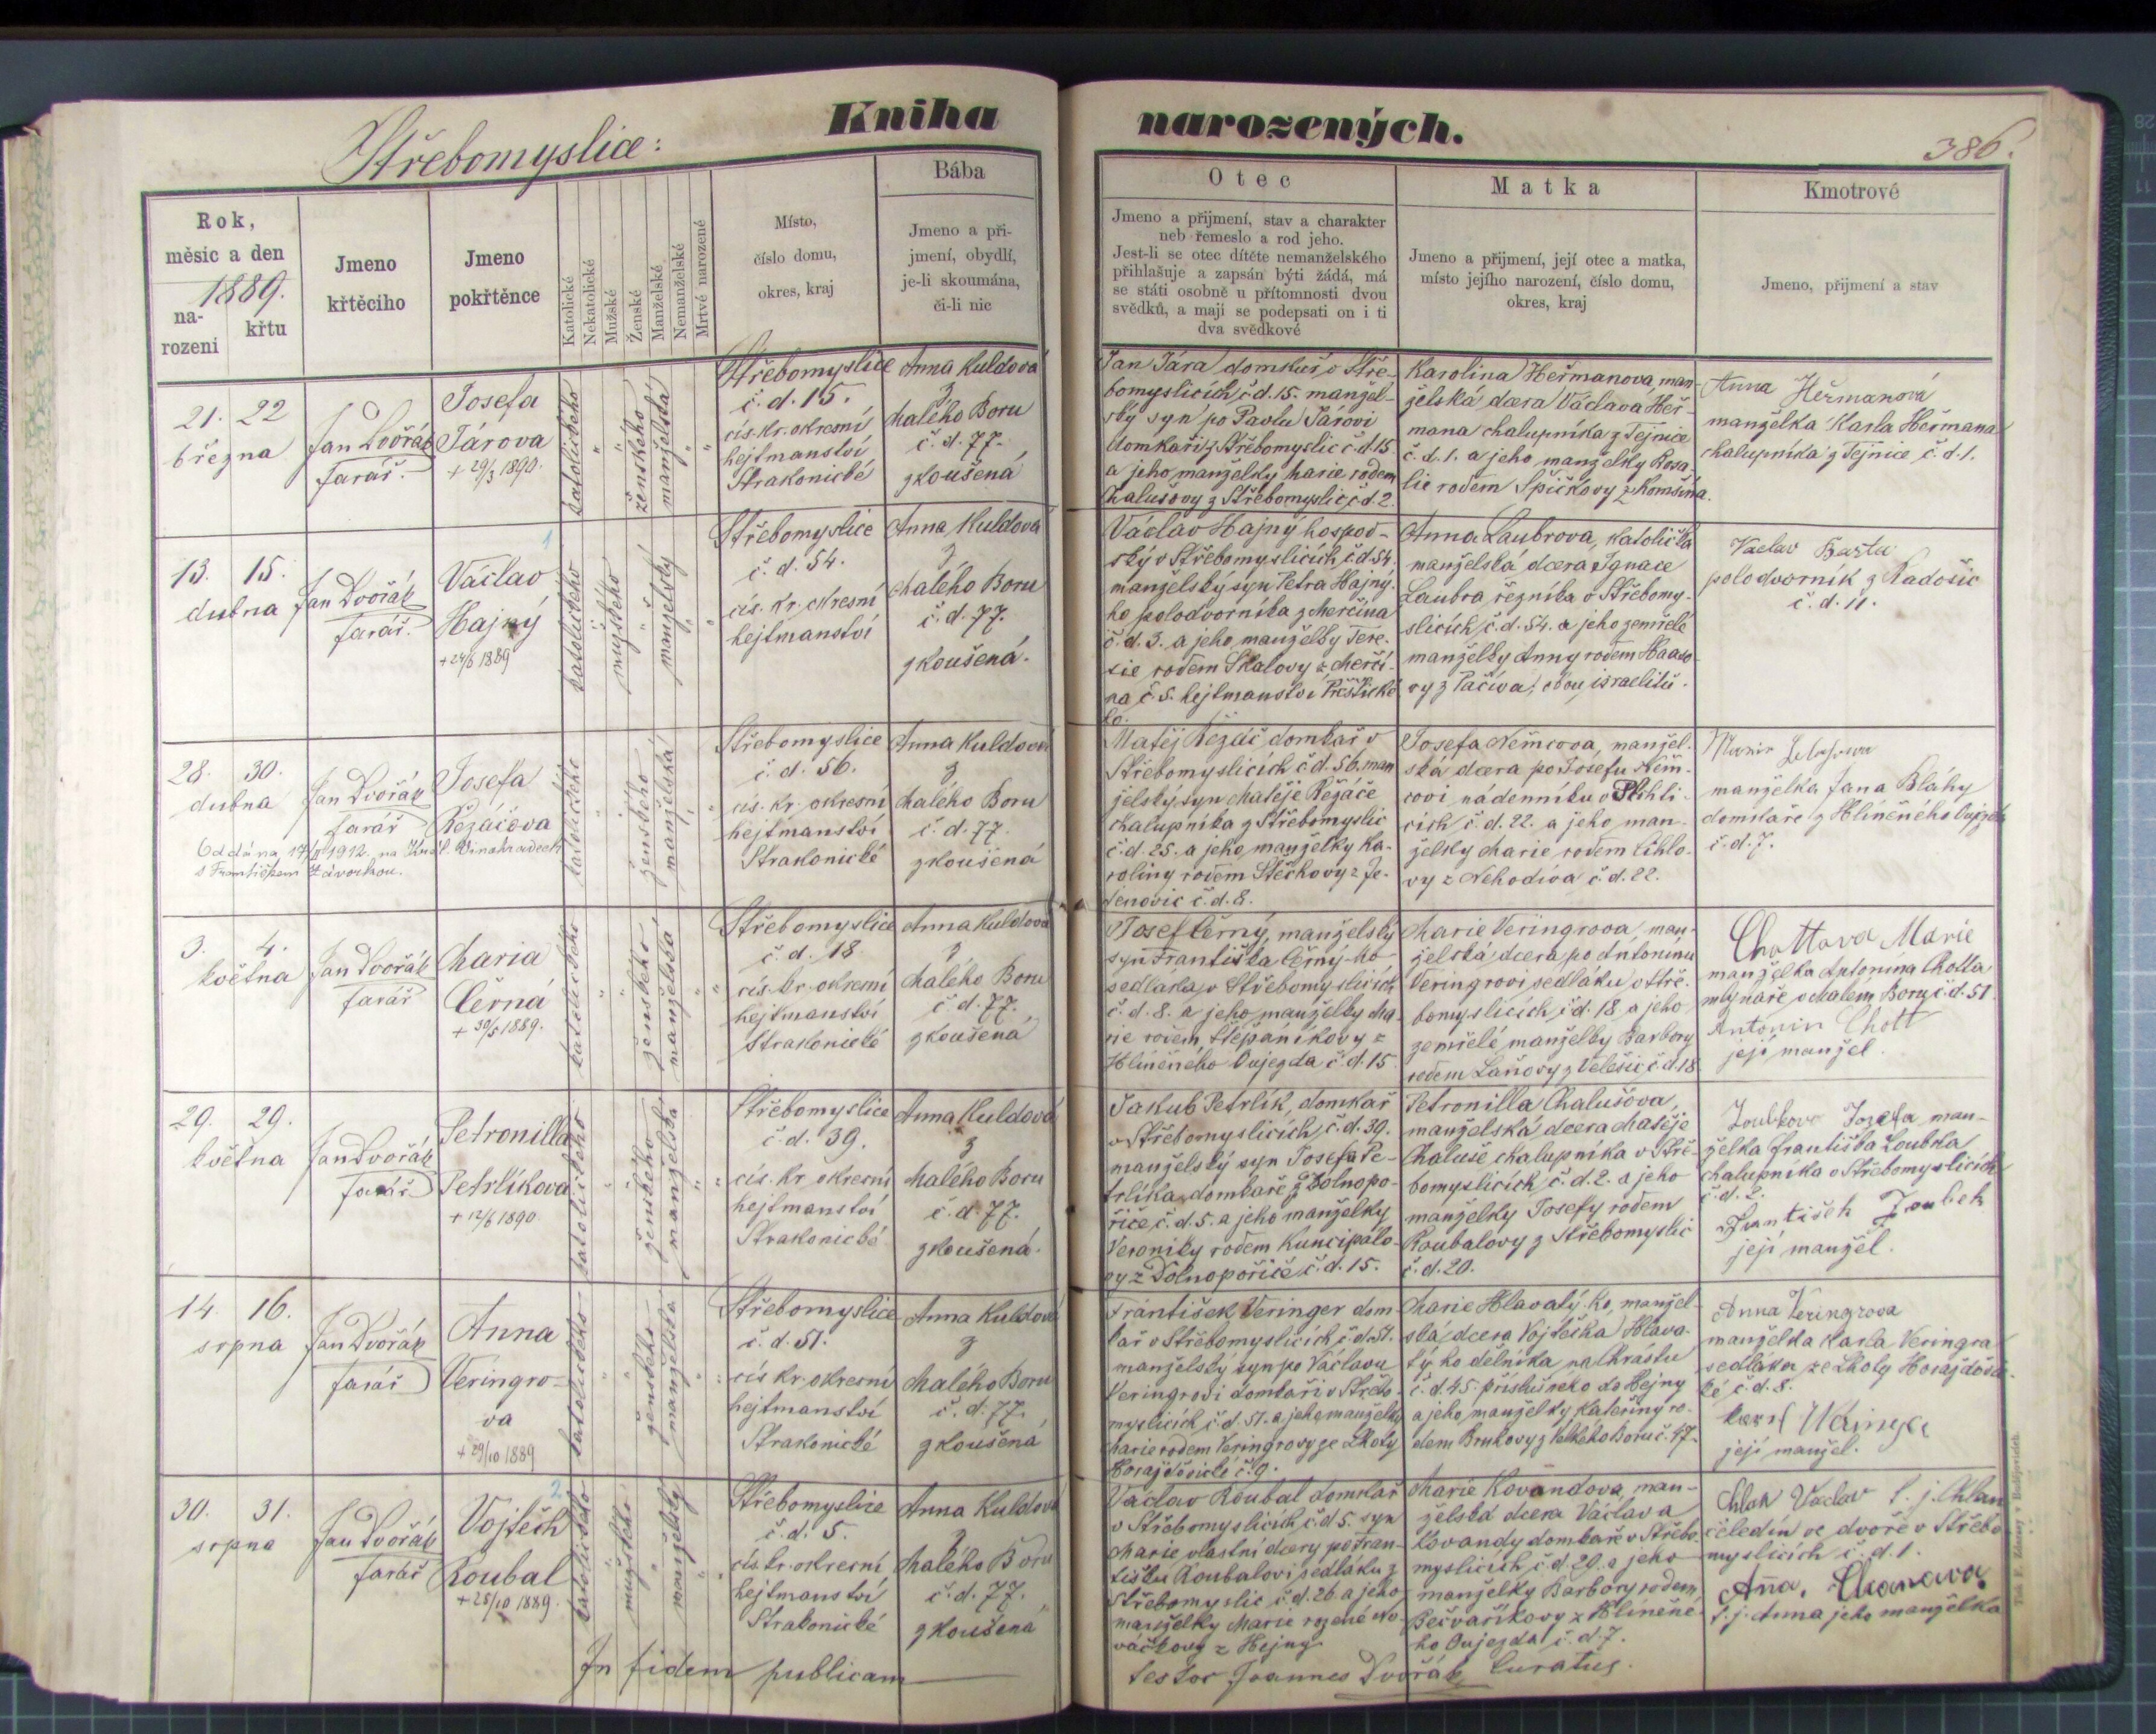 Střebomyslice:
Kniha narozených.
386.
Rok,
měsíc a den
1889.
na-
rozeni
křtu
Jmeno
křtěciho
Jmeno
pokřtěnce
Katolické
Nekatolické
Mužské
Ženské
Manželské
Nemanželské
Mrtvé narozené
Místo,
číslo domu,
okres, kraj
Bába
Jmeno a při-
jmení, obydlí,
je-li skoumána,
či-li nic
Otec
Jmeno a přijmení, stav a charakter
neb řemeslo a rod jeho.
Jest-li se otec dítěte nemanželského
přihlašuje a zapsán býti žádá, má
se státi osobně u přítomnosti dvou
svědků, a mají se podepsati on i ti
dva svědkové
Matka
Jmeno a přijmení, její otec a matka,
místo jejího narození, číslo domu,
okres, kraj
Kmotrové
Jmeno, přijmení a stav
21. 22
března
Jan Dvořák
farář.
Josefa
Járova
+ 29/3 1890.
katolického
ženského
manželská
Střebomyslice
č. d. 15.
cís. kr. okresní
hejtmanství
Strakonické
Anna Kuldová
z
Malého Boru
č. d. 77.
zkoušená
Jan Jára domkář v Stře-
bomyslicích č. d. 15. manžel-
ský syn po Pavlu Járovi
domkáři z Střebomyslic č. d. 15
a jeho manželky Marie rodem
Chalušovy z Střebomyslic č. d. 2.
Karolina Heřmanova, man-
želská dcera Václava Heř-
mana chalupníka z Tejnice
č. d. 1. a jeho manželky Rosa-
lie rodem Špičkovy z Komšína.
Anna Heřmanová
manželka Karla Heřmana
chalupníka z Tejnice č. d. 1.
13. 15.
dubna
Jan Dvořák
farář.
1
Václav
Hajný
+ 24/6 1889
katolického
mužského
manželský
Střebomyslice
č. d. 54.
cís. kr. okresní
hejtmanství
Anna Kuldová
z
Malého Boru
č. d. 77.
zkoušená.
Václav Hajný hospod-
ský v Střebomyslicích č. d. 54
manželský syn Petra Hajný-
ho polodvorníka z Merčína
č. d. 3. a jeho manželky Tere-
sie rodem Skalovy z Merčí-
na č. 5. hejtmanství Přeštické
ho.
Anna Laubrova, katolička
manželská dcera Ignace
Laubra řezníka v Střebomy-
slicích č. d. 54. a jeho zemřelé
manželky Anny rodem Haaso-
vy z Pačiva, obou israelitů.
Vaclav Basta
polodvorník z Radošic
č. d. 11.
28. 30.
dubna
Jan Dvořák
farář
Josefa
Řezáčova
Oddána 17/II 1912. na Král. Vinohradech
s Františkem Závorkou.
katolického
ženského
manželská
Střebomyslice
č. d. 56.
cís. kr. okresní
hejtmanství
Strakonické
Anna Kuldová
z
Malého Boru
č. d. 77.
zkoušená
Matěj Řezáč domkář v
Střebomyslicích č. d. 56. man
želský syn Matěje Řezáče
chalupníka z Střebomyslic
č. d. 25. a jeho manželky Ka-
roliny rodem Stečkovy z Je-
tenovic č. d. 8.
Josefa Němcova, manžel-
ská dcera po Josefu Něm-
covi nádenníku v Plichti-
cích č. d. 22. a jeho man-
želky Marie rodem Cihlo-
vy z Nehodiva č. d. 22.
manželka Jana Bláhy
domkáře z Hliněného Oujezda
č. d. 7.
3. 4.
května
Jan Dvořák
farář
Maria
Černá
+ 30/5 1889.
katolického
ženského
manželská
Střebomyslice
č. d. 18
cís. kr. okresní
hejtmanství
Strakonické
Anna Kuldová
z
Malého Boru
č. d. 77.
zkoušená
Josef Černý, manželský
syn Františka Černý-ho
sedláka v Střebomyslicích
č. d. 8. a jeho manželky Ma-
rie rodem Štěpánikovy z
Hliněného Oujezda č. d. 15
Marie Veringrova, man-
želská dcera po Antonínu
Veringrovi sedláku v Stře-
bomyslicích č. d. 18. a jeho
zemřelé manželky Barbory
rodem Laňovy z Velešic č. d. 18
Chottova Marie
manželka Antonína Chotta
mlynáře v Malém Boru č. d. 51
Antonin Chott
její manžel.
29. 29.
května
Jan Dvořák
farář
Petronilla
Petrlíkova
+ 12/6 1890
katolického
ženského
manželská
Střebomyslice
č. d. 39.
cís. kr. okresní
hejtmanství
Strakonické
Anna Kuldová
z
Malého Boru
č. d. 77.
zkoušená.
Jakub Petrlík, domkář
v Střebomyslicích, č. d. 39.
manželský syn Josefa Pe-
trlíka domkáře z Dolnopo-
říče č. d. 5. a jeho manželky
Veroniky rodem Kuncipálo-
vy z Dolnopoříče č. d. 15.
Petronilla Chalušova,
manželská dcera Matěje
Chaluše chalupníka v Stře-
bomyslicích č. d. 2. a jeho
manželky Josefy rodem
Roubalovy z Střebomyslic
č. d. 20.
Zoubkova Josefa man-
želka Františka Zoubka
chalupníka v Střebomyslicích
č. d. 2.
František Zoubek
její manžel.
14. 16.
srpna
Jan Dvořák
farář
Anna
Veringro-
va
+ 29/10 1889
katolického
ženského
manželská
Střebomyslice
č. d. 51.
cís. kr. okresní
hejtmanství
Strakonické
Anna Kuldová
z
Malého Boru
č. d. 77.
zkoušená
František Veringer dom-
kář v Střebomyslicích č. d. 51.
manželský syn po Václavu
Veringrovi domkáři v Střebo-
myslicích č. d. 51. a jeho manželky
Marie rodem Veringrovy ze Lhoty
Horažďovické č. 9.
Marie Hlavatý-ho, manžel-
ská dcera Vojtěcha Hlava-
tý-ho dělníka na Chrástu
č. d. 45. příslušného do Hejny
a jeho manželky Kateřiny ro-
dem Brukovy z Velkého Boru č. 47.
Anna Veringrova
manželka Karla Veringra
sedláka ze Lhoty Horažďovic-
ké č. d. 8.
její manžel.
30. 31.
srpna
Jan Dvořák
farář
2.
Vojtěch
Roubal
+ 25/10 1889.
katolického
mužského
manželský
Střebomyslice
č. d. 5.
cís. kr. okresní
hejtmanství
Strakonické
Anna Kuldová
z
Malého Boru
č. d. 77.
zkoušená
Václav Roubal domkář
v Střebomyslicích č. d. 5. syn
Marie vlastní dcery po Fran-
tišku Roubalovi sedláku z
Střebomyslic č. d. 26. a jeho
manželky Marie rozené No-
váčkovy z Hejny
Marie Kovandova, man-
želská dcera Václava
Kovandy domkáře v Střebo-
myslicích č. d. 29. a jeho
manželky Barbory rodem
Bečvaříkovy z Hliněné-
ho Oujezda č. d. 7.
Václav
čeledín ve dvoře v Střebo
myslicích č. d. 1.
Aňa.
t. j. Anna jeho manželka
In fidem publicam
testor Joannes Dvořák Curatus.